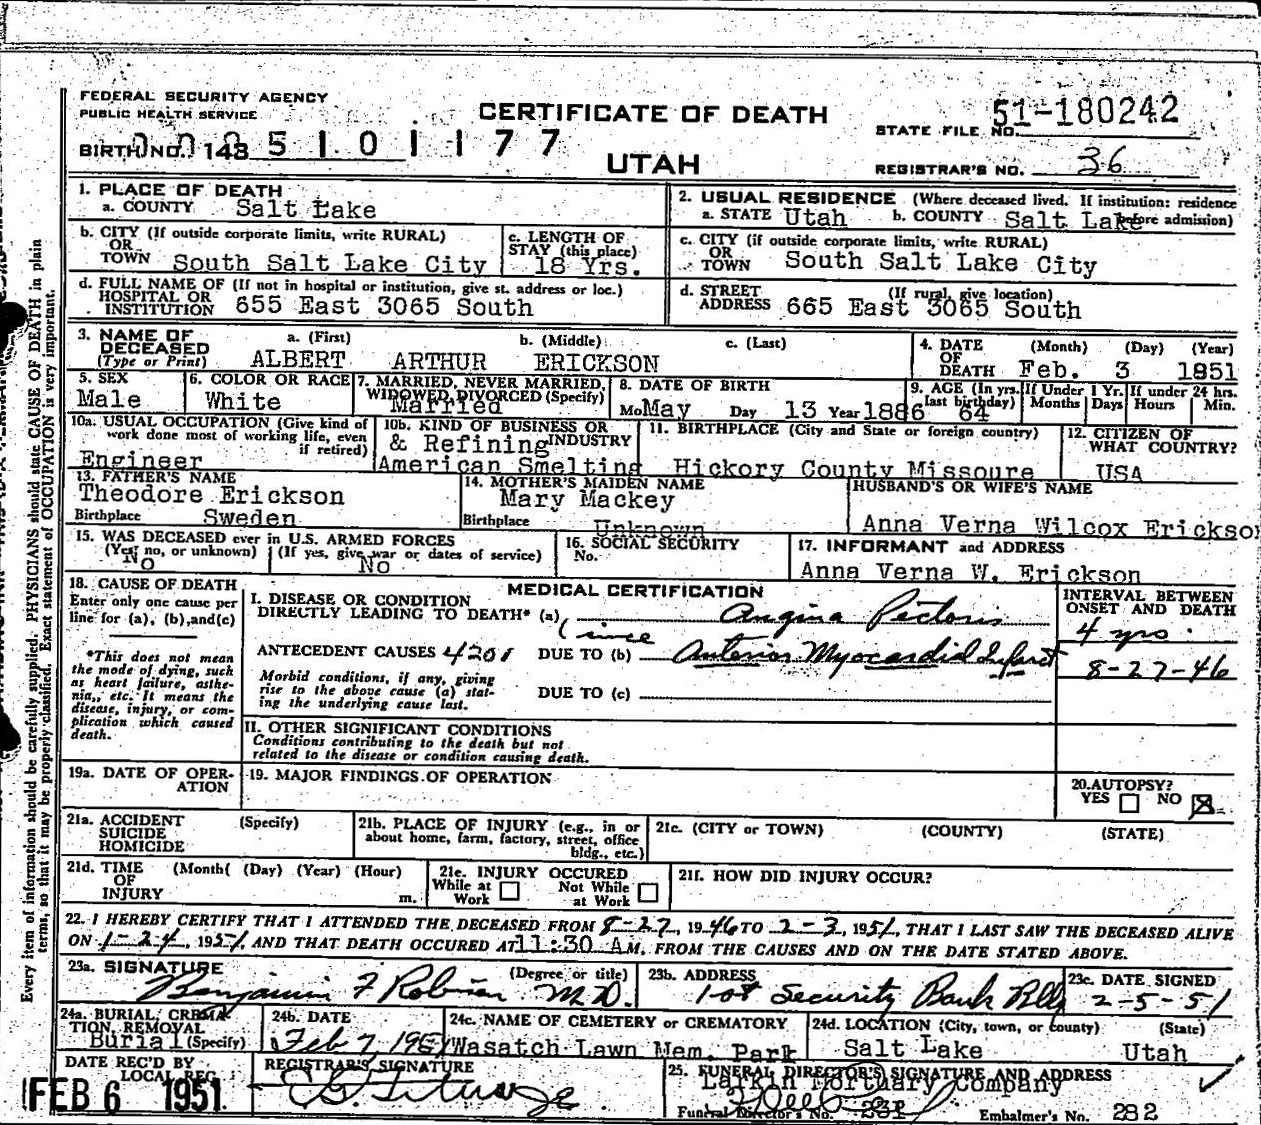 FEDERAL SECURITY AGENCY
PUBLIC HEALTH SERVICE
CERTIFICATE OF DEATH
UTAH
STATE FILE NO. 51-180242
BIRTH NO. 143 5 1 0 1 1 7 7
REGISTRAR'S NO. 36
1. PLACE OF DEATH
a. COUNTY Salt Lake
2. USUAL RESIDENCE (Where deceased lived. If institution: residence before admission)
a. STATE Utah b. COUNTY Salt Lake
b. CITY (If outside corporate limits, write RURAL)
OR
TOWN South Salt Lake City
c. LENGTH OF
STAY (this place)
18 Yrs.
c. CITY (if outside corporate limits, write RURAL)
OR
TOWN South Salt Lake City
d. FULL NAME OF (If not in hospital or institution, give st. address or loc.)
HOSPITAL OR
INSTITUTION 655 East 3065 South
d. STREET (If rural, give location)
ADDRESS 665 East 3065 South
3. NAME OF a. (First) b. (Middle) c. (Last)
DECEASED
(Type or Print) ALBERT ARTHUR ERICKSON
4. DATE (Month) (Day) (Year)
OF
DEATH Feb. 3 1851
5. SEX
Male
6. COLOR OR RACE
White
7. MARRIED, NEVER MARRIED,
WIDOWED, DIVORCED (Specify)
Married
8. DATE OF BIRTH
Mo May Day 13 Year 1886
9. AGE (In yrs. last birthday) 64
If Under 1 Yr. Months Days
If under 24 hrs. Hours Min.
10a. USUAL OCCUPATION (Give kind of
work done most of working life, even
if retired)
Engineer
10b. KIND OF BUSINESS OR
INDUSTRY
& Refining
American Smelting
11. BIRTHPLACE (City and State or foreign country)
Hickory County Missoure
12. CITIZEN OF
WHAT COUNTRY?
USA
13. FATHER'S NAME
Theodore Erickson
Birthplace Sweden
14. MOTHER'S MAIDEN NAME
Mary Mackey
Birthplace Unknown
HUSBAND'S OR WIFE'S NAME
Anna Verna Wilcox Erickson
15. WAS DECEASED ever in U.S. ARMED FORCES
(Yes, no, or unknown) (If yes, give war or dates of service)
No No
16. SOCIAL SECURITY
No.
17. INFORMANT and ADDRESS
Anna Verna W. Erickson
18. CAUSE OF DEATH
Enter only one cause per
line for (a), (b), and (c)
*This does not mean
the mode of dying, such
as heart failure, asthe-
nia, etc. It means the
disease, injury, or com-
plication which caused
death.
MEDICAL CERTIFICATION
I. DISEASE OR CONDITION
DIRECTLY LEADING TO DEATH* (a) Angina Pectoris
(since
ANTECEDENT CAUSES 4201 DUE TO (b) Anterior Myocardial Infarct
Morbid conditions, if any, giving
rise to the above cause (a) stat-
ing the underlying cause last.
DUE TO (c)
INTERVAL BETWEEN
ONSET AND DEATH
4 yrs.
8-27-46
II. OTHER SIGNIFICANT CONDITIONS
Conditions contributing to the death but not
related to the disease or condition causing death.
19a. DATE OF OPER-
ATION
19. MAJOR FINDINGS OF OPERATION
20. AUTOPSY?
YES NO
21a. ACCIDENT (Specify)
SUICIDE
HOMICIDE
21b. PLACE OF INJURY (e.g., in or
about home, farm, factory, street, office
bldg., etc.)
21c. (CITY or TOWN) (COUNTY) (STATE)
21d. TIME (Month( (Day) (Year) (Hour)
OF
INJURY m.
21e. INJURY OCCURED
While at Work Not While at Work
21f. HOW DID INJURY OCCUR?
22. I HEREBY CERTIFY THAT I ATTENDED THE DECEASED FROM 8-27, 1946 TO 2-3, 1951, THAT I LAST SAW THE DECEASED ALIVE
ON 1-24, 1951, AND THAT DEATH OCCURED AT 11:30 AM, FROM THE CAUSES AND ON THE DATE STATED ABOVE.
23a. SIGNATURE (Degree or title)
Benjamin F Robison M.D.
23b. ADDRESS
Security Bank Bldg
23c. DATE SIGNED
2-5-51
24a. BURIAL, CREMA-
TION, REMOVAL
Burial (Specify)
24b. DATE
Feb 7, 1951
24c. NAME OF CEMETERY or CREMATORY
Wasatch Lawn Mem. Park
24d. LOCATION (City, town, or county) (State)
Salt Lake Utah
DATE REC'D BY
LOCAL REG.
FEB 6 1951
REGISTRAR'S SIGNATURE
25. FUNERAL DIRECTOR'S SIGNATURE AND ADDRESS
Larkin Mortuary Company
Funeral Director's No. 231 Embalmer's No. 282
Every item of information should be carefully supplied. PHYSICIANS should state CAUSE OF DEATH in plain
terms, so that it may be properly classified. Exact statement of OCCUPATION is very important.